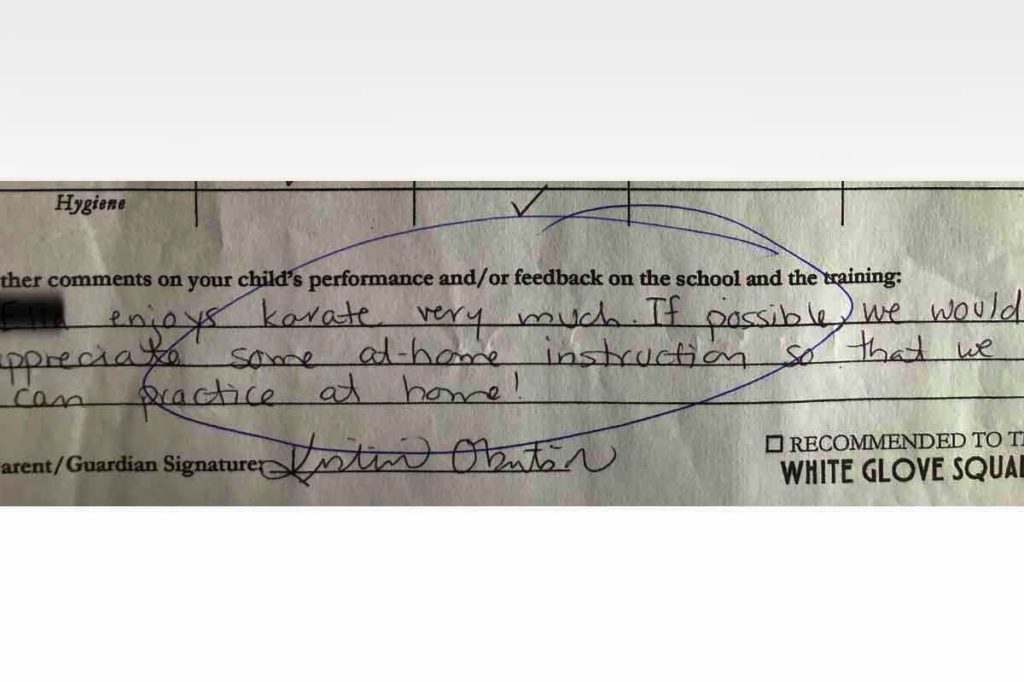 Hygiene
ther comments on your child's performance and/or feedback on the school and the training:
enjoys karate very much. If possible, we would
ppreciate some at-home instruction so that we
can practice at home!
arent/Guardian Signature:
☐ RECOMMENDED TO TA
WHITE GLOVE SQUA